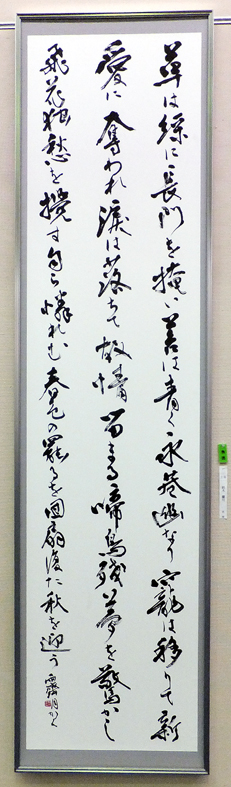 草は緑に長門を掩い苔は青く永巷幽なり寵は移りて新
愛に奪われ涙は落ちて故情留まる啼鳥残夢を驚かし
飛花独愁を攪す自ら憐れむ春色の罷るを団扇復た秋を迎う かく